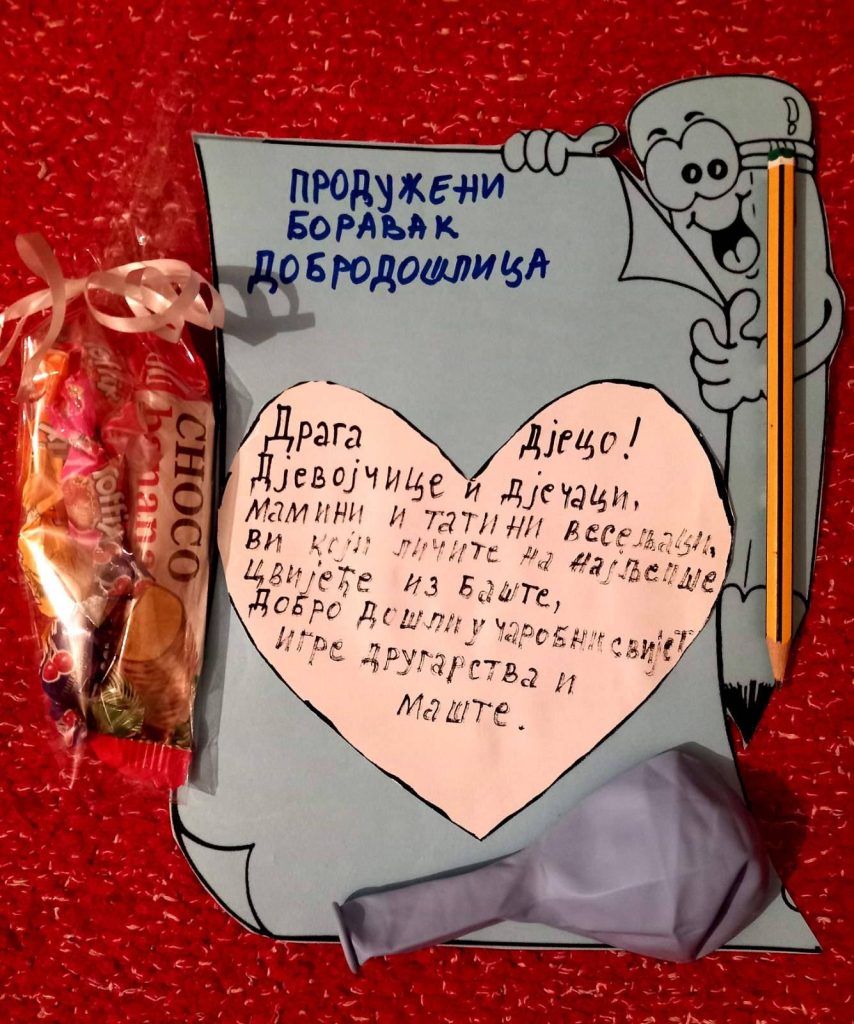 ПРОДУЖЕНИ
БОРАВАК
ДОБРОДОШЛИЦА
Драга дјецо!
Дјевојчице и дјечаци,
мамини и татини весељаци,
ви који личите на најљепше
цвијеће из баште,
добро дошли у чаробни свијет
игре другарства и
маште.
CHOCO
banana
Toffix